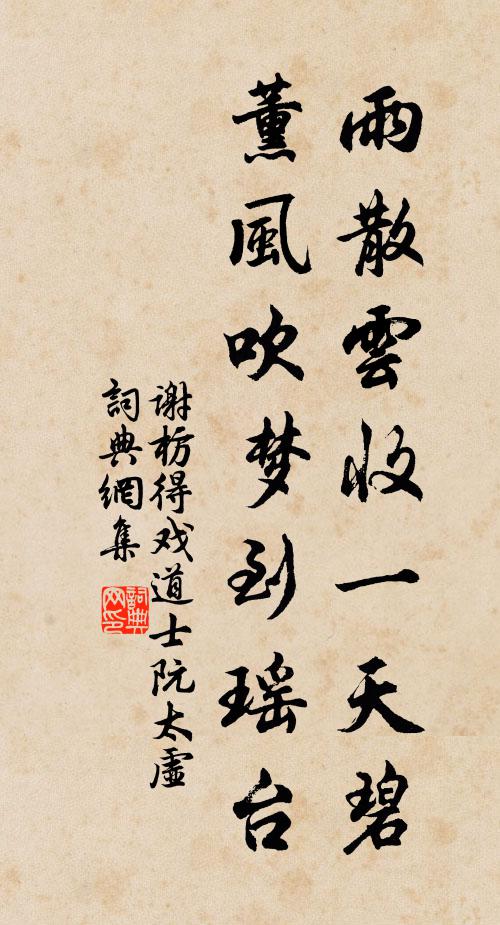 雨散雲收一天碧
薰風吹梦到瑶台
谢枋得戏道士阮太虚
詞典網集
詞典
网印